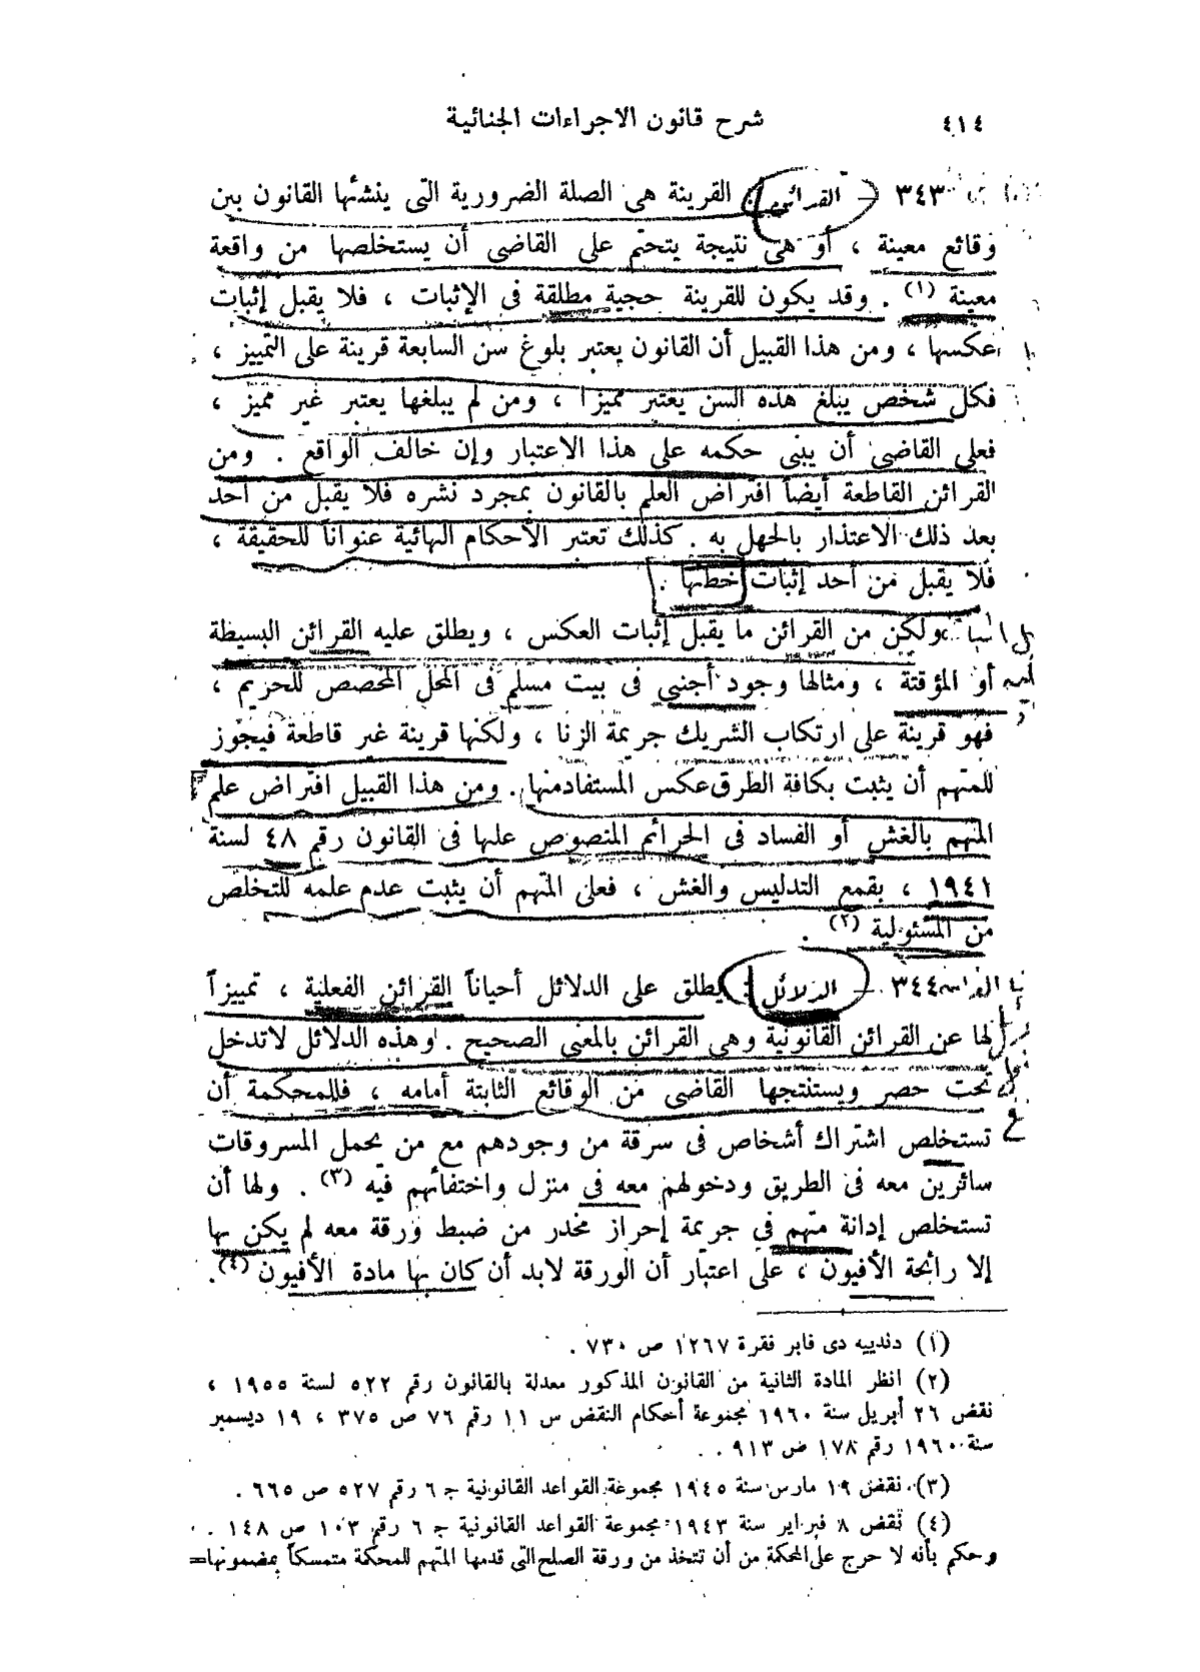 ٤١٤
شرح قانون الاجراءات الجنائية
٣٤٣ — القرائن : القرينة هى الصلة الضرورية التى ينشئها القانون بين
وقائع معينة ، أو هى نتيجة يتحتم على القاضى أن يستخلصها من واقعة
معينة (١) . وقد يكون للقرينة حجية مطلقة فى الإثبات ، فلا يقبل إثبات
عكسها ، ومن هذا القبيل أن القانون يعتبر بلوغ سن السابعة قرينة على التمييز ،
فكل شخص يبلغ هذه السن يعتبر مميزاً ، ومن لم يبلغها يعتبر غير مميز ،
فعلى القاضى أن يبنى حكمه على هذا الاعتبار وإن خالف الواقع . ومن
القرائن القاطعة أيضاً افتراض العلم بالقانون بمجرد نشره فلا يقبل من أحد
بعد ذلك الاعتذار بالجهل به . كذلك تعتبر الأحكام النهائية عنواناً للحقيقة ،
فلا يقبل من أحد إثبات خطئها .
ولكن من القرائن ما يقبل إثبات العكس ، ويطلق عليه القرائن البسيطة
أو المؤقتة ، ومثالها وجود أجنبى فى بيت مسلم فى المحل المخصص للحريم ،
فهو قرينة على ارتكاب الشريك جريمة الزنا ، ولكنها قرينة غير قاطعة فيجوز
للمتهم أن يثبت بكافة الطرق عكس المستفاد منها . ومن هذا القبيل افتراض علم
المتهم بالغش أو الفساد فى الجرائم المنصوص عليها فى القانون رقم ٤٨ لسنة
١٩٤١ ، بقمع التدليس والغش ، فعلى المتهم أن يثبت عدم علمه للتخلص
من المسئولية (٢) .
٣٤٤ — الدلائل : يطلق على الدلائل أحياناً القرائن الفعلية ، تمييزاً
لها عن القرائن القانونية وهى القرائن بالمعنى الصحيح . وهذه الدلائل لاتدخل
تحت حصر ويستنتجها القاضى من الوقائع الثابتة أمامه ، فللمحكمة أن
تستخلص اشتراك أشخاص فى سرقة من وجودهم مع من يحمل المسروقات
سائرين معه فى الطريق ودخولهم معه فى منزل واختفائهم فيه (٣) . ولها أن
تستخلص إدانة متهم فى جريمة إحراز مخدر من ضبط ورقة معه لم يكن بها
إلا رائحة الأفيون ، على اعتبار أن الورقة لابد أن كان بها مادة الأفيون (٤) .
(١) دندييه دى فابر فقرة ١٢٦٧ ص ٧٣٠ .
(٢) انظر المادة الثانية من القانون المذكور معدلة بالقانون رقم ٥٢٢ لسنة ١٩٥٥ ،
نقض ٢٦ أبريل سنة ١٩٦٠ مجموعة أحكام النقض س ١١ رقم ٧٦ ص ٣٧٥ ، ١٩ ديسمبر
سنة ١٩٦٠ رقم ١٧٨ ص ٩١٣ .
(٣) نقض ١٩ مارس سنة ١٩٤٥ مجموعة القواعد القانونية ج ٦ رقم ٥٢٧ ص ٦٦٥ .
(٤) نقض ٨ فبراير سنة ١٩٤٣ مجموعة القواعد القانونية ج ٦ رقم ١٠٣ ص ١٤٨ .
وحكم بأنه لا حرج على المحكمة من أن تتخذ من ورقة الصلح التى قدمها المتهم للمحكمة متمسكاً بمضمونها=